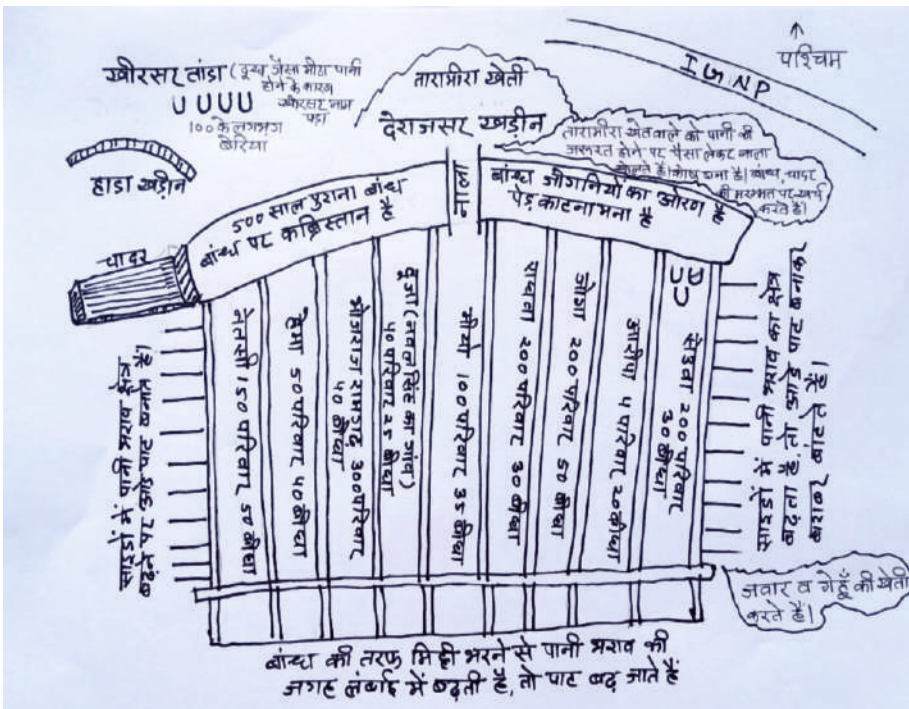 ↑
पश्चिम
I G N P
खीरसर तांडा (दूध जैसा मीठा पानी
होने के कारण
खीरसर नाम
पड़ा
U U U U
100 के लगभग
बेरिया
हाडा खड़ीन
तारामीरा खेती
देराजसर खड़ीन
तारामीरा खेत वाले को पानी की
जरूरत होने पर पैसा लेकर नाला
खोलते हैं। कोष बना है। बांध, चादर
की मरम्मत पर खर्च
करते हैं।
500 साल पुराना बांध
बांध पर कब्रिस्तान है
नाला
बांध जोगनियो का ओरण है
पेड़ काटना मना है
चादर
साइडों में पानी भराव क्षेत्र
बढ़ने पर ओड़े पाट बनाते हैं।
नेतसी 150 परिवार 50 बीघा
हेमा 50 परिवार 40 बीघा
भोजराज रामगढ़ 300 परिवार
40 बीघा
दूजा (नवलसिंह का गांव)
40 परिवार 25 बीघा
सीयो 100 परिवार 35 बीघा
राघवा 200 परिवार 30 बीघा
जोगा 200 परिवार 50 बीघा
आसीया 4 परिवार 20 बीघा
सेऊवा 200 परिवार
30 बीघा
साइडों में पानी भराव का क्षेत्र
बढ़ता है, तो ओड़े पाट बनाकर
बराबर बांटते हैं।
जवार व गेहूँ की खेती
करते हैं।
बांध की तरफ मिट्टी भरने से पानी भराव की
जगह लंबाई में बढ़ती है, तो पाट बढ़ जाते हैं